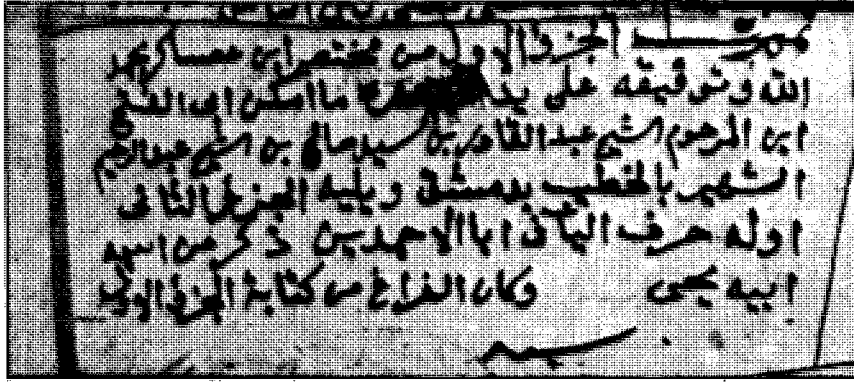 تمت الجزؤ الاول من مختصر ابن عساكر بحمد
الله وتوفيقه على يد ما امكن ابى الفتح
ابن المرحوم الشيخ عبد القادر بن سيد صالح بن الشيخ عبد الرحيم
الشهير بالخطيب بدمشق ويليه الجزؤ الثانى
اوله حرف اليا فى ابا الاحمدين ذكر من اسم
ابيه يحيى وكان الفراغ من كتابة الجزؤ الاول